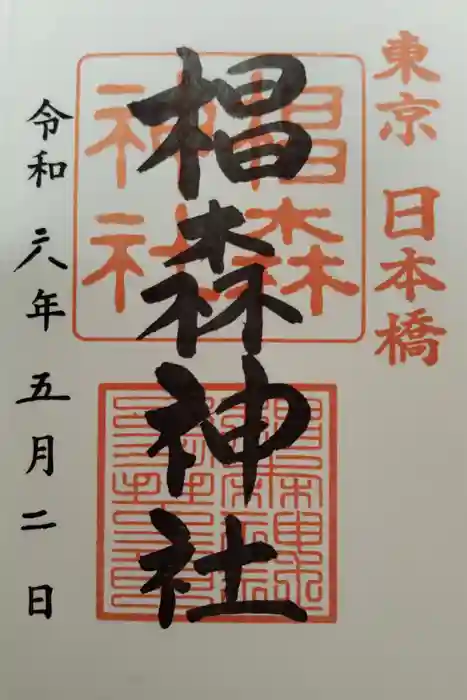 東京 日本橋
椙森神社
椙森
神社
令和六年五月二日